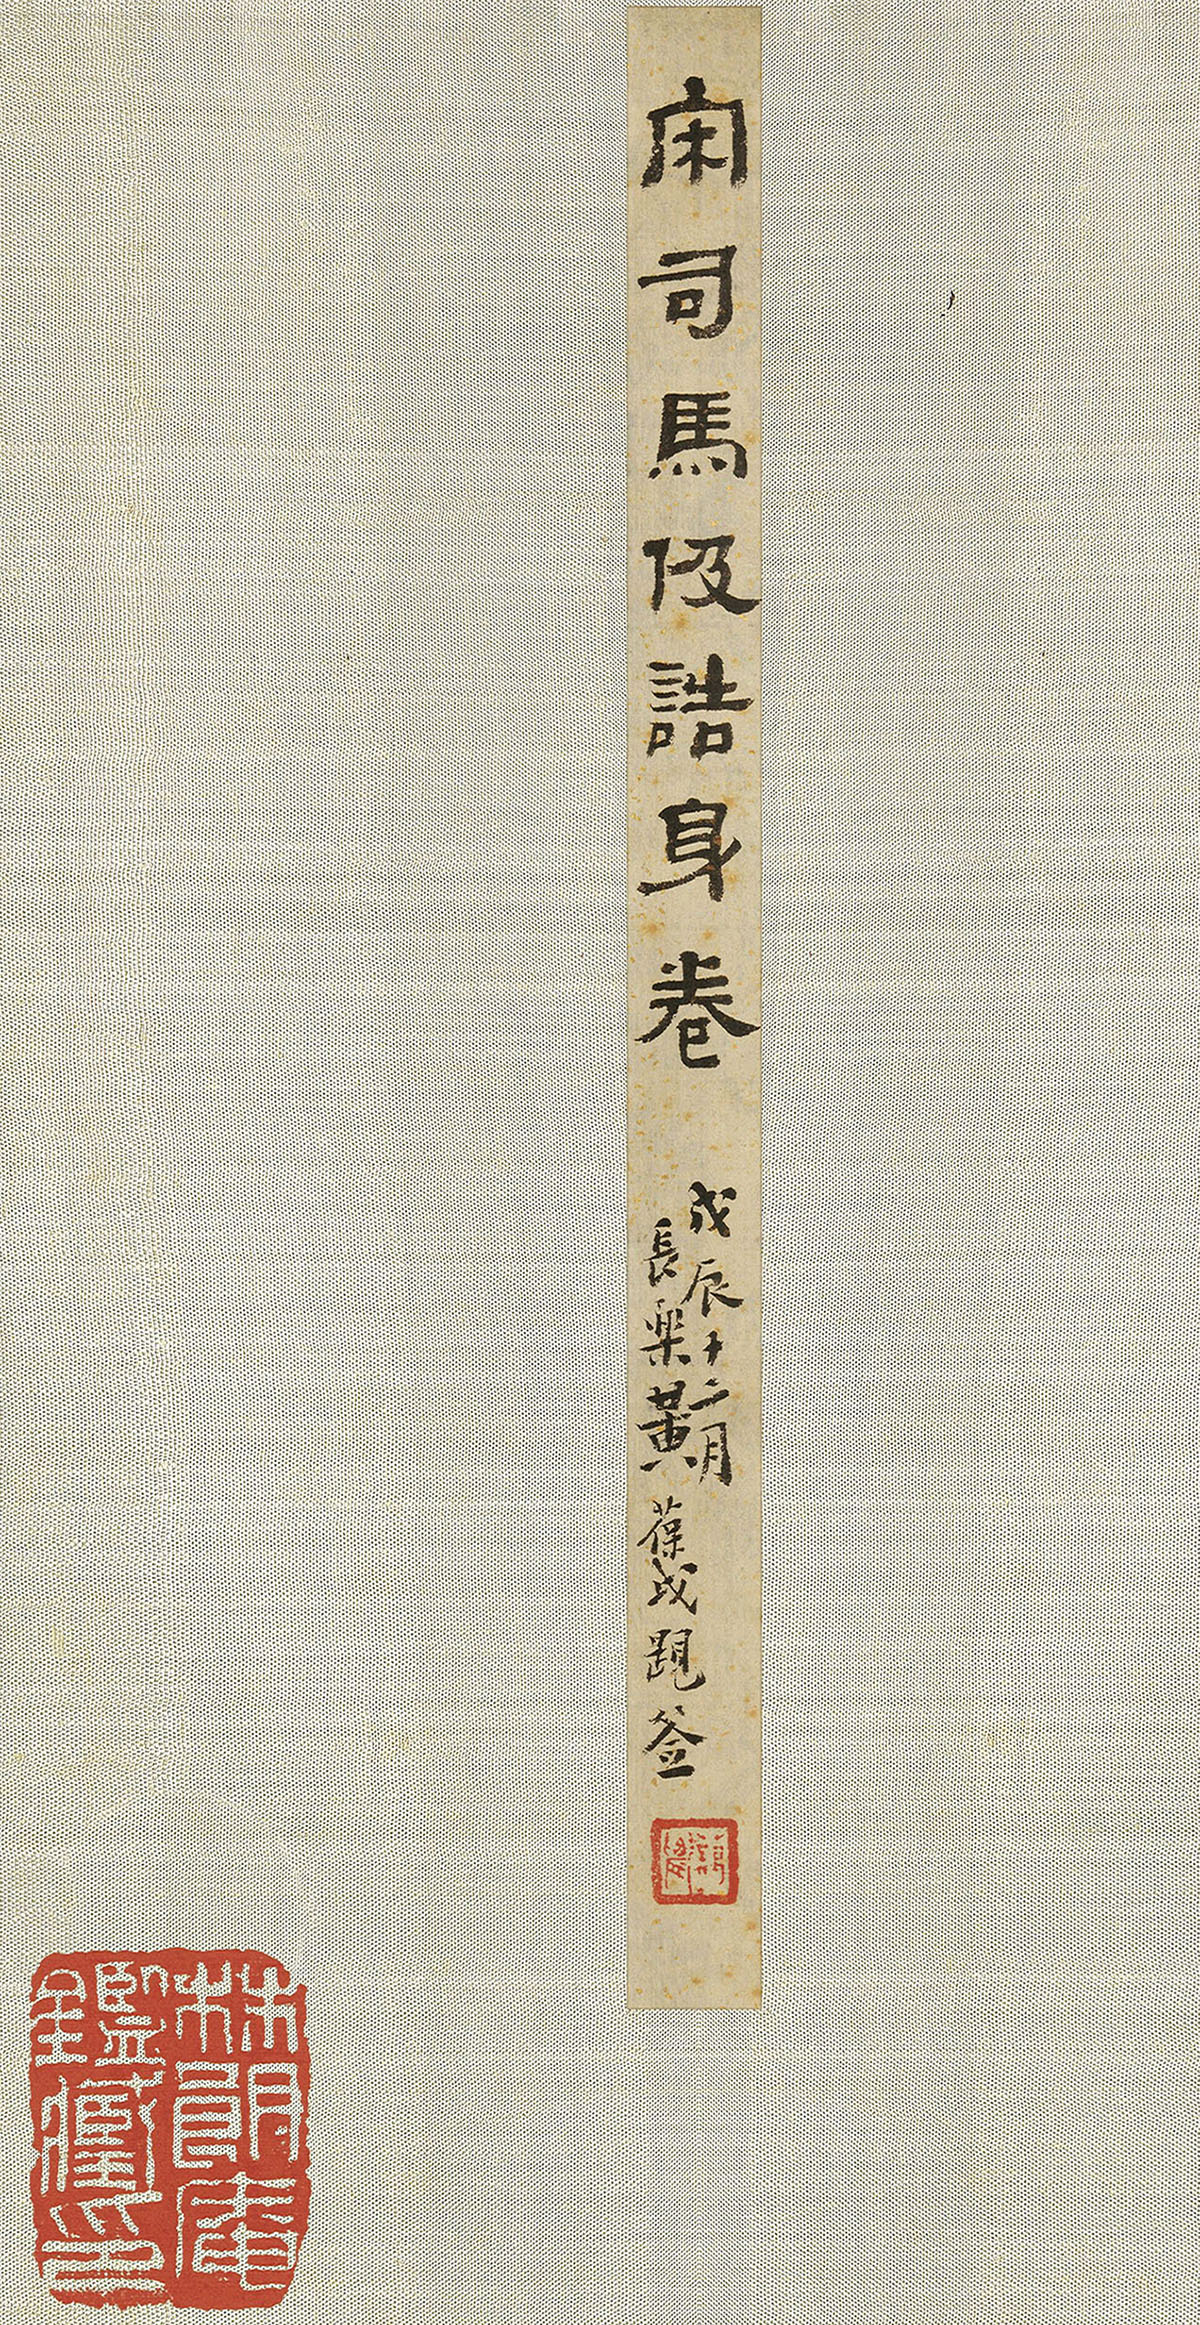 宋司馬伋誥身卷
戊辰十二月
長樂黃葆戉題簽
林朗庵
鑑藏印